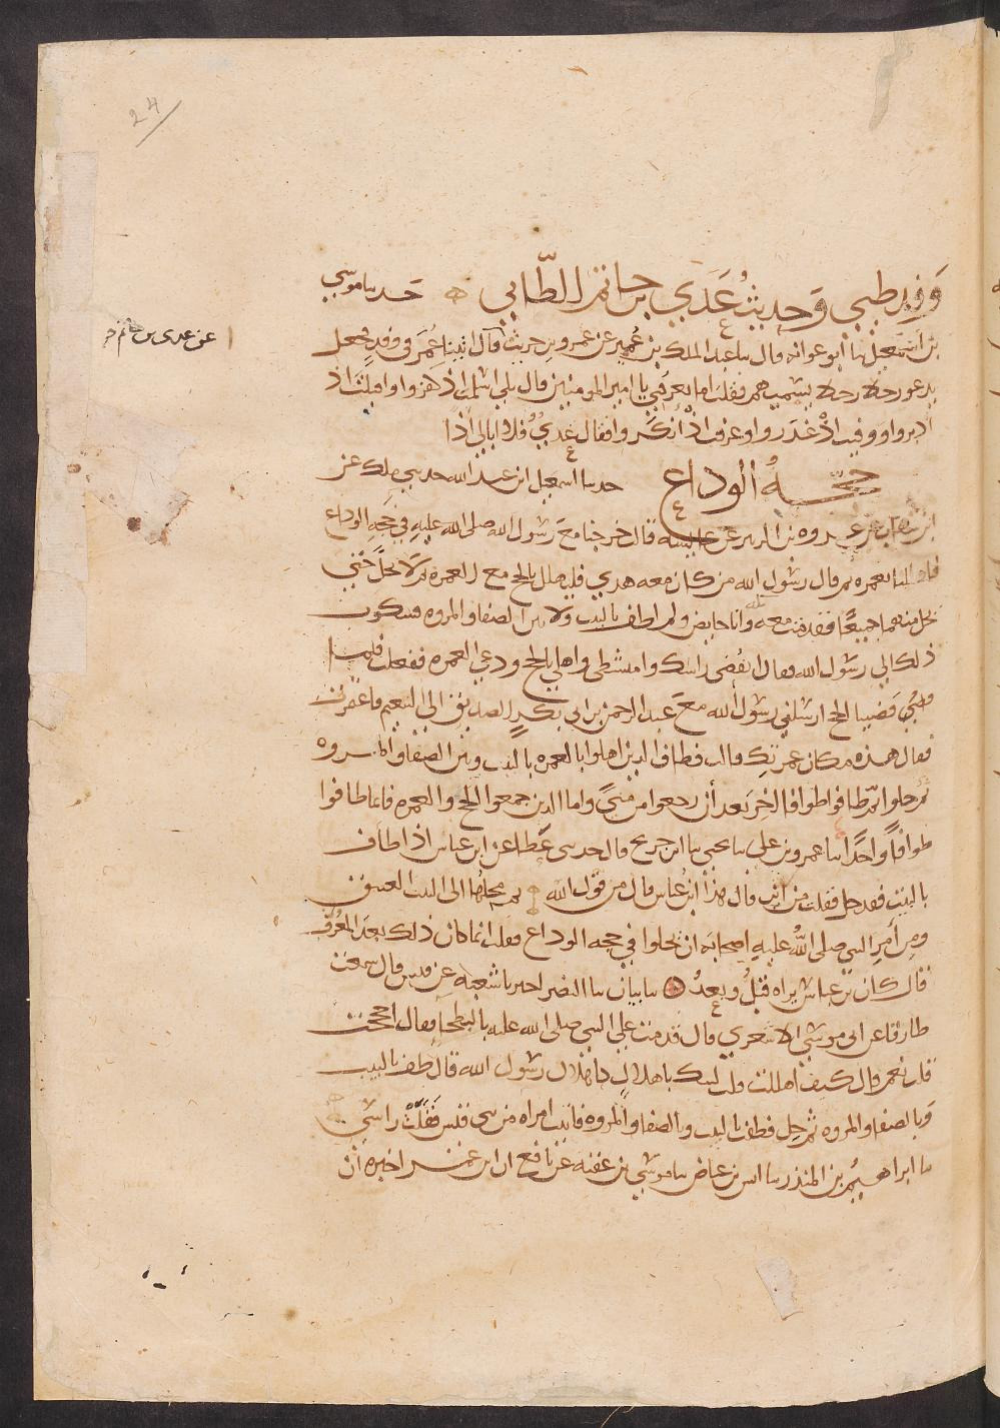 24
وفد طيي وحديث عدي بن حاتم الطايي حدثنا موسي
عن عدى بن حاتم
بن اسمعيل نا ابو عوانه قال نا عبد الملك بن عمير عن عمرو بن حريث قال اتينا عمر في وفد فجعل
يدعو رجلا رجلا يسميهم فقلت اما تعرفني يا امير المومنين قال بلي اسلمت اذ كفروا واقبلت اذ
ادبروا ووفيت اذ غدروا وعرفت اذ انكروا فقال عدي فلا ابالي اذا
حجه الوداع حدثنا اسمعيل ابن عبد الله حدثني ملك عن
ابن شهاب عن عروه بن الزبير عن عايشه قالت خرجنا مع رسول الله صلى الله عليه في حجه الوداع
فاهللنا بعمره ثم قال رسول الله من كان معه هدي فليهلل بالحج مع العمره ثم لا يحل حتي
يحل منهما جميعا فقدمت معه مكه وانا حايض ولم اطف بالبيت ولا بين الصفا والمروه فشكوت
ذلك الي رسول الله فقال انقضى راسك وامتشطى واهلي بالحج ودعي العمره ففعلت فلما
قضينا الحج ارسلني رسول الله مع عبد الرحمن بن ابى بكر الصديق الي التنعيم فاعتمرت
فقال هذه مكان عمرتك قالت فطاف الذين اهلوا بالعمره بالبيت وبين الصفا والمروه
ثم حلوا ثم طافوا طوافا اخر بعد أن رجعوا من منى واما الذين جمعوا الحج والعمره فانما طافوا
طوافا واحدا نا عمرو بن على نا يحيى نا ابن جريج قال حدثنى عطا عن ابن عباس اذا طاف
بالبيت فقد حل فقلت من اين قال هذا ابن عباس قال من قول الله ثم محلها الى البيت العتيق
ومن أمر النبى صلى الله عليه اصحابه ان يحلوا في حجه الوداع فقلت انما كان ذلك بعد المعرف
قال كان بن عباس يراه قبل وبعد نا بيان نا النضر اخبرنا شعبه عن قيس قال سمعت
طارقا عن ابى موسي الاشعري قال قدمت علي النبى صلى الله عليه بالبطحا فقال احججت
قلت نعم قال كيف اهللت قلت لبيك باهلال كاهلال رسول الله قال طف بالبيت
وبالصفا والمروه ثم حل فطفت بالبيت وبالصفا والمروه فاتيت امراه من قيس ففلت راسي
نا ابراهيم بن المنذر نا انس بن عياض نا موسي بن عقبه عن نافع ان ابن عمر اخبره ان